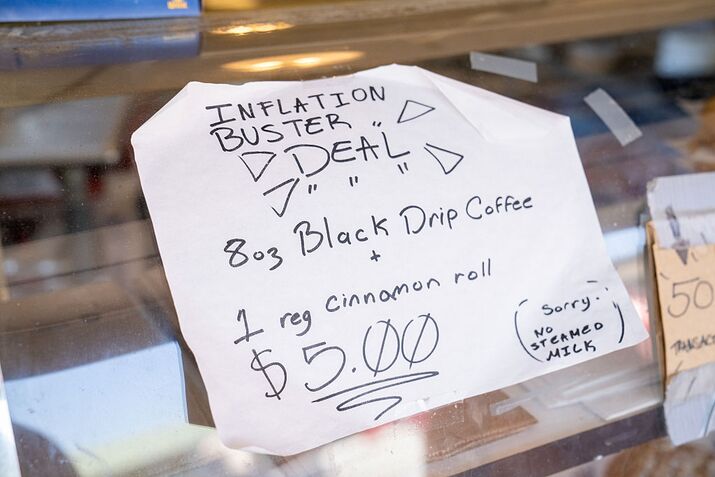 INFLATION
BUSTER
DEAL
8oz Black Drip Coffee
+
1 reg cinnamon roll
$5.00
Sorry:
NO
STEAMED
MILK
50